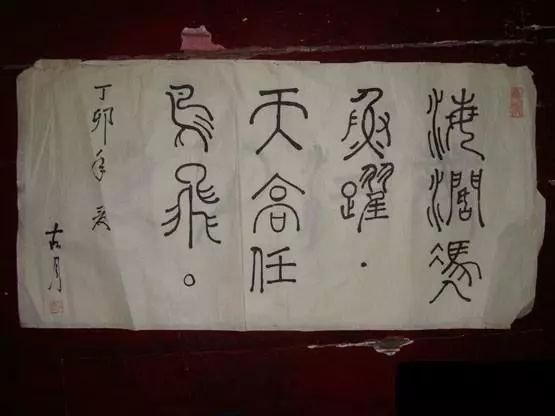 海濶凴
魚躍.
天高任
鳥飛。
丁卯年夏
古月